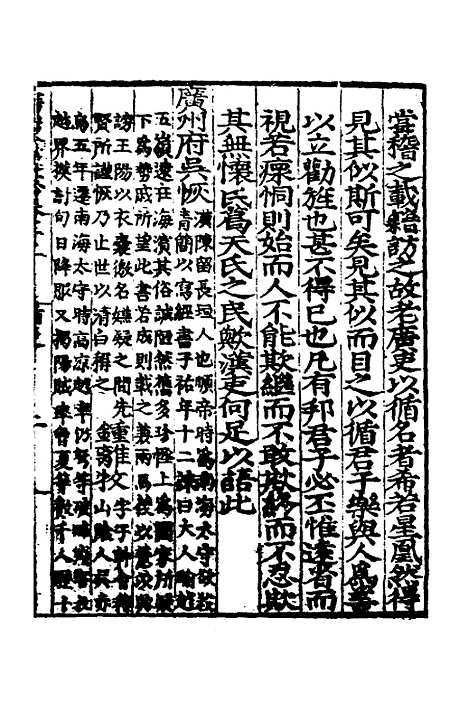 嘗稽之載籍訪之故老唐吏以循名者希若星鳳然得
見其似斯可矣見其似而目之以循君子樂與人為善
以立勸旌也甚不得已也凡有邦君子必丕惟遠者而
視若瘝恫則始而人不能欺繼而不敢欺終而不忍欺
其無懷氏葛天氏之民歟漢吏何足以語此
廣州府吳恢漢陳留長垣人也順帝時為南海太守欲殺
青簡以寫經書子祐年十二諫曰大人踰越
五嶺遠在海濱其俗誠陋然舊多珍怪上為國家所疑
下為戚所望此書若成則載之兼兩馬援以薏苡興
謗王陽以衣囊徼名嫌疑之間先
賢所謹恢乃止世以清白稱之
烏五年遷南海太守時高涼
越界撲討旬日降服又揭陽賊曾夏等數千人歷十